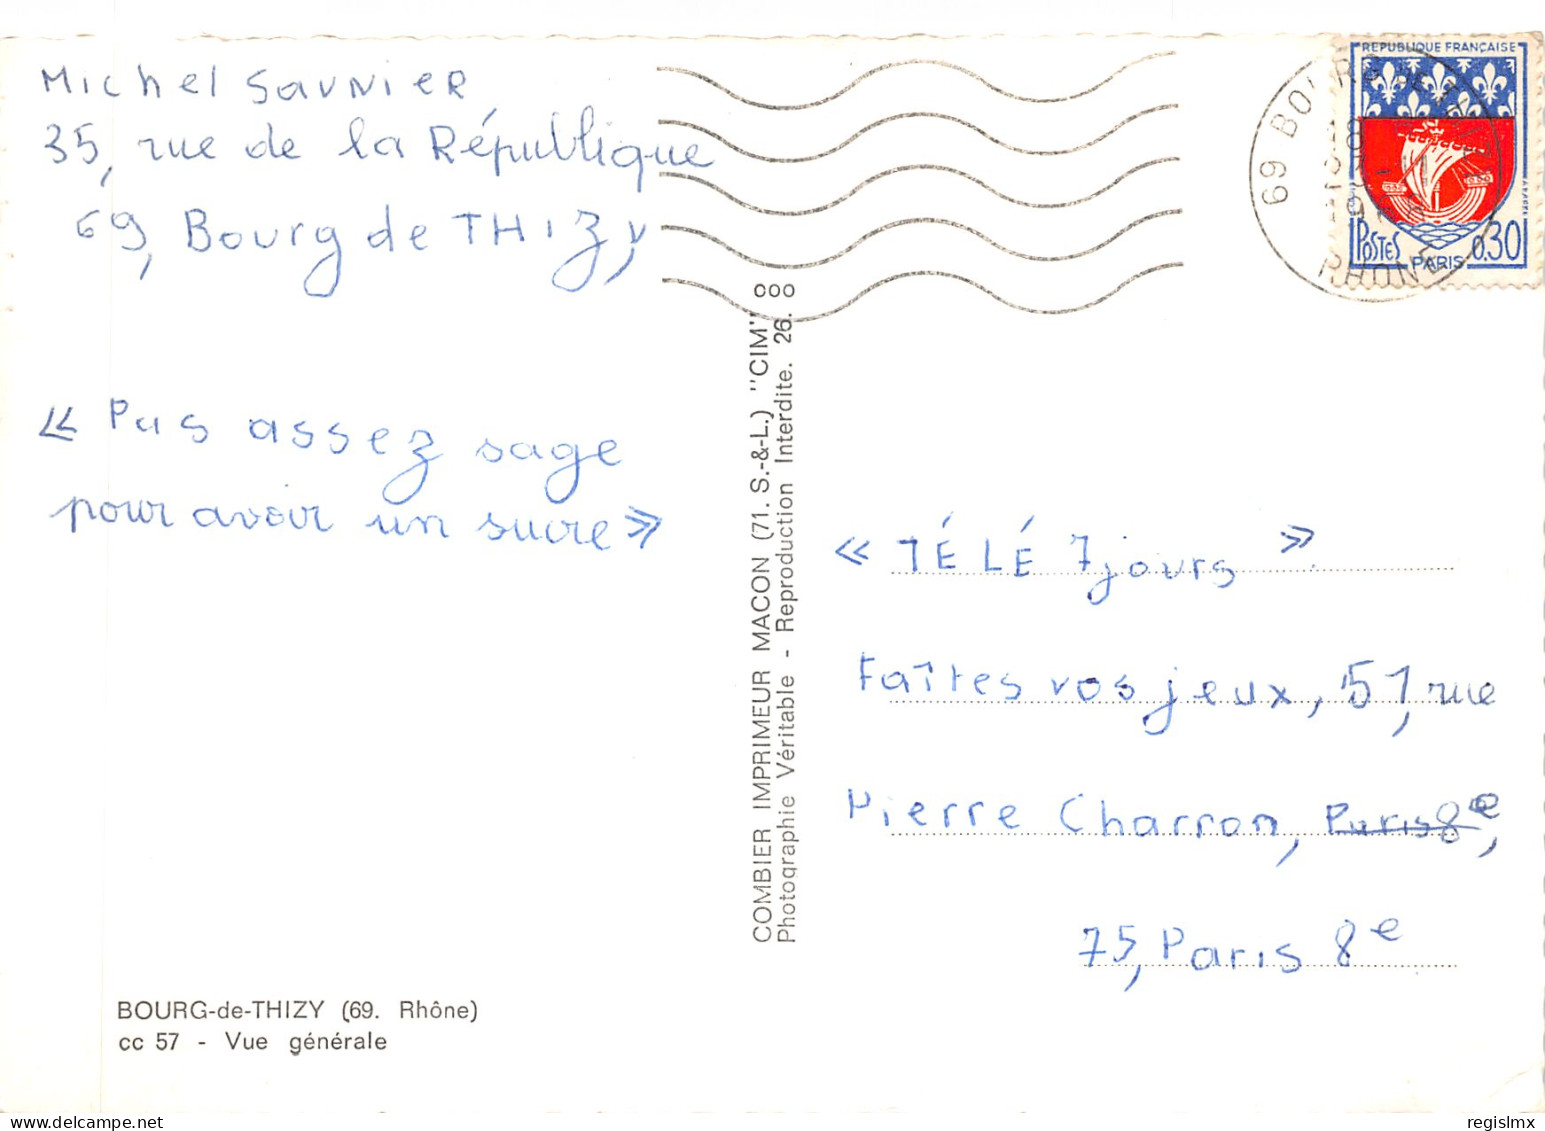 Michel Saunier
35, rue de la République
69, Bourg de THIZY
« Pas assez sage
pour avoir un sucre »
BOURG-de-THIZY (69. Rhône)
cc 57 - Vue générale
COMBIER IMPRIMEUR MACON (71. S.-&-L.) "CIM"
Photographie Véritable - Reproduction Interdite. 26. 000
REPUBLIQUE FRANÇAISE
POSTES PARIS 0,30
69 BOURG DE THIZY
RHONE
« TÉLÉ 7 jours »
Faîtes vos jeux, 51, rue
Pierre Charron, Paris 8e,
75, Paris 8e
regislmx